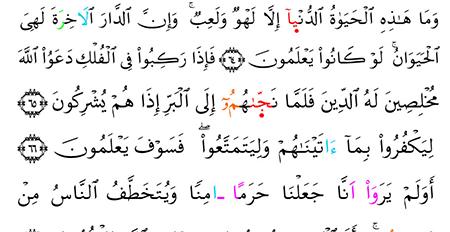 وَمَا هَٰذِهِ الْحَيَوٰةُ الدُّنْيَآ إِلَّا لَهْوٌ وَلَعِبٌ ۚ وَإِنَّ الدَّارَ الَاخِرَةَ لَهِىَ
الْحَيَوَانُ ۚ لَوْ كَانُوا۟ يَعْلَمُونَ ۝٦٤ فَإِذَا رَكِبُوا۟ فِى الْفُلْكِ دَعَوُا۟ اللَّهَ
مُخْلِصِينَ لَهُ الدِّينَ فَلَمَّا نَجَّىٰهُمُۥٓ إِلَى الْبَرِّ إِذَا هُمْ يُشْرِكُونَ ۝٦٥
لِيَكْفُرُوا۟ بِمَآ ءَاتَيْنَٰهُمْ وَلِيَتَمَتَّعُوا۟ ۖ فَسَوْفَ يَعْلَمُونَ ۝٦٦
أَوَلَمْ يَرَوَاْ اَنَّا جَعَلْنَا حَرَمًا ـامِنًا وَيُتَخَطَّفُ النَّاسُ مِنْ